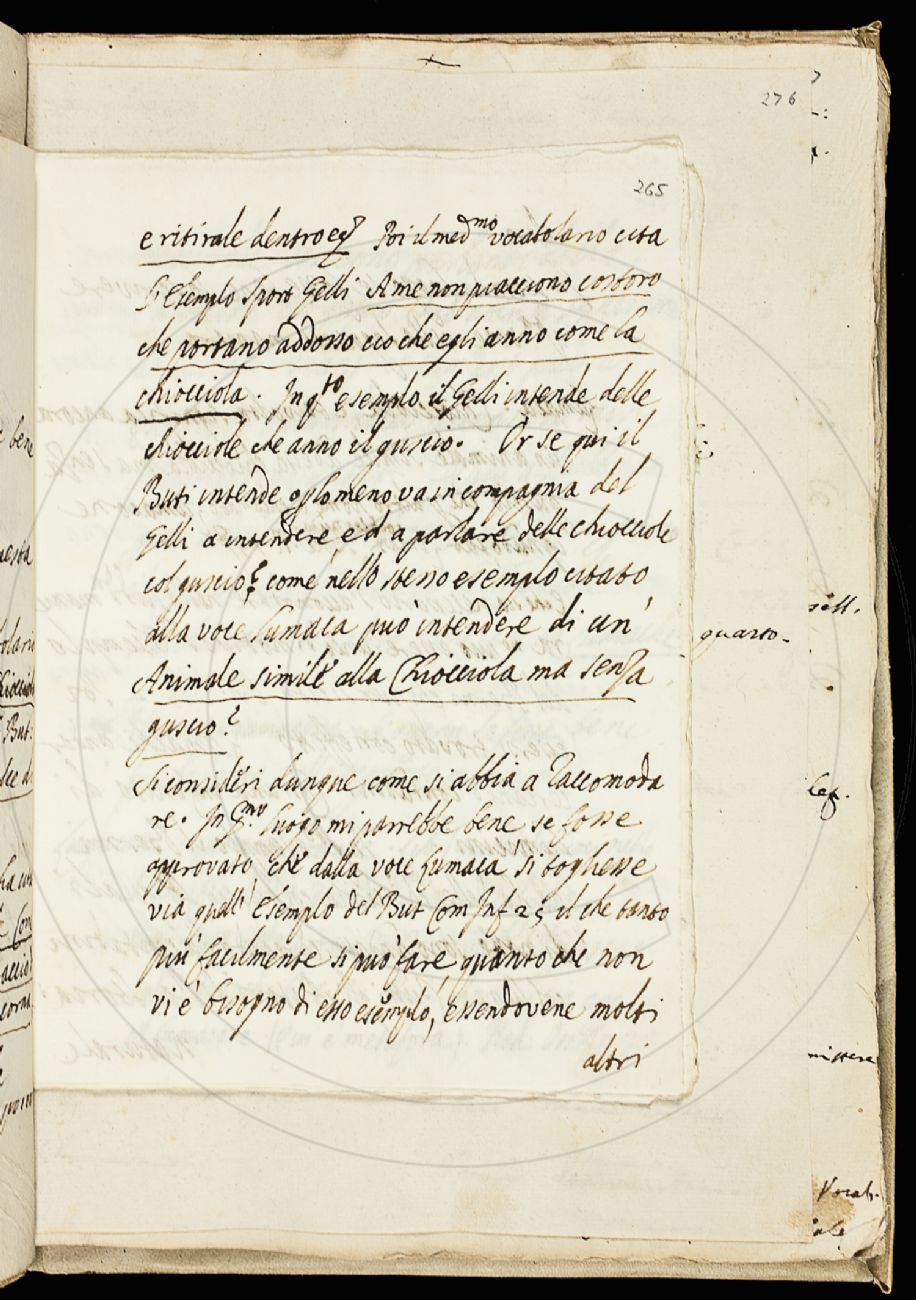 276
265
e ritirale dentro eg.
Poi il med.mo vocabolario cita
l'Esemplo Sport Gelli A me non piacciono costoro
che portano addosso ciò che egli anno come la
chiocciola. In q.to esemplo il Gelli intende delle
chiocciole che anno il guscio. Or se qui il
Buti intende o glomeno va in compagnia del
Gelli a intendere, ed a parlare delle chiocciole
col guscio; come nello stesso esemplo citato
alla voce Lumaca può intendere di un'
Animale simile alla Chiocciola ma senza
guscio?
Si consideri dunque come si abbia a raccomoda
re. In p.mo luogo mi parrebbe bene se fosse
approvato, che dalla voce Lumaca si toglesse
via quell' Esemplo del But Com Inf 25 il che tanto
più facilmente si può fare quanto che non
vi è bisogno di esso esemplo, essendovene molti
altri
quarto.
bene